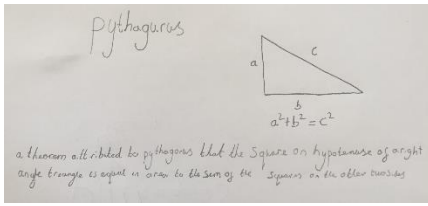 pythagurus
a
c
b
a²+b²=c²
a theorem attributed to pythagorus that the square on hypotenuse of a right
angle triangle is equal in area to the sum of the squares on the other two sides